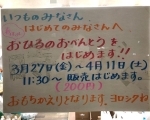 いつものみなさん
はじめてのみなさんへ
おひるのおべんとうを
はじめます!!
3月27日(金)～4月11日(土)
11:30～ 販売します。
(200円)
おもちかえりとなります。ヨロシクね